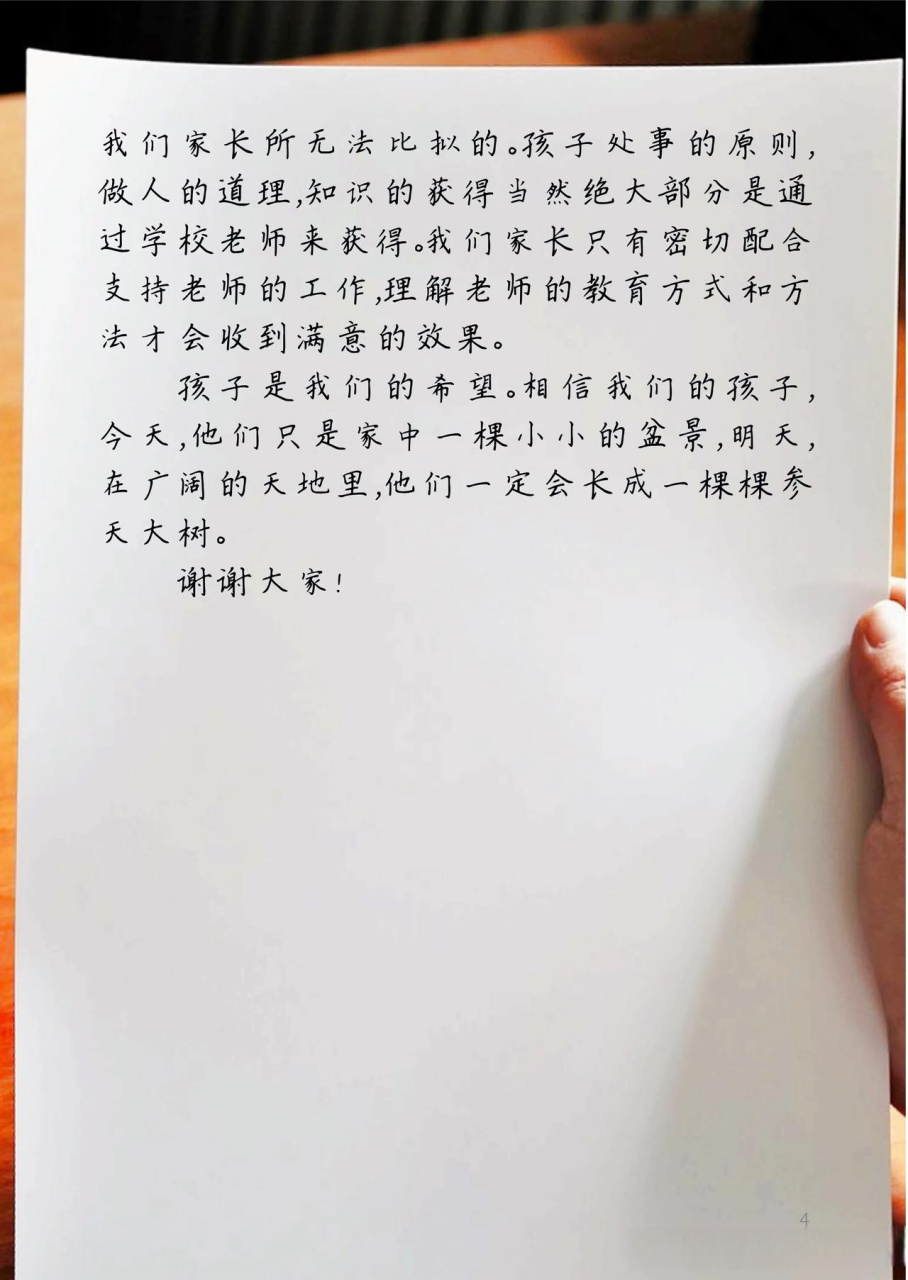 我们家长所无法比拟的。孩子处事的原则,
做人的道理,知识的获得当然绝大部分是通
过学校老师来获得。我们家长只有密切配合
支持老师的工作,理解老师的教育方式和方
法才会收到满意的效果。
孩子是我们的希望。相信我们的孩子,
今天,他们只是家中一棵小小的盆景,明天,
在广阔的天地里,他们一定会长成一棵棵参
天大树。
谢谢大家!
4